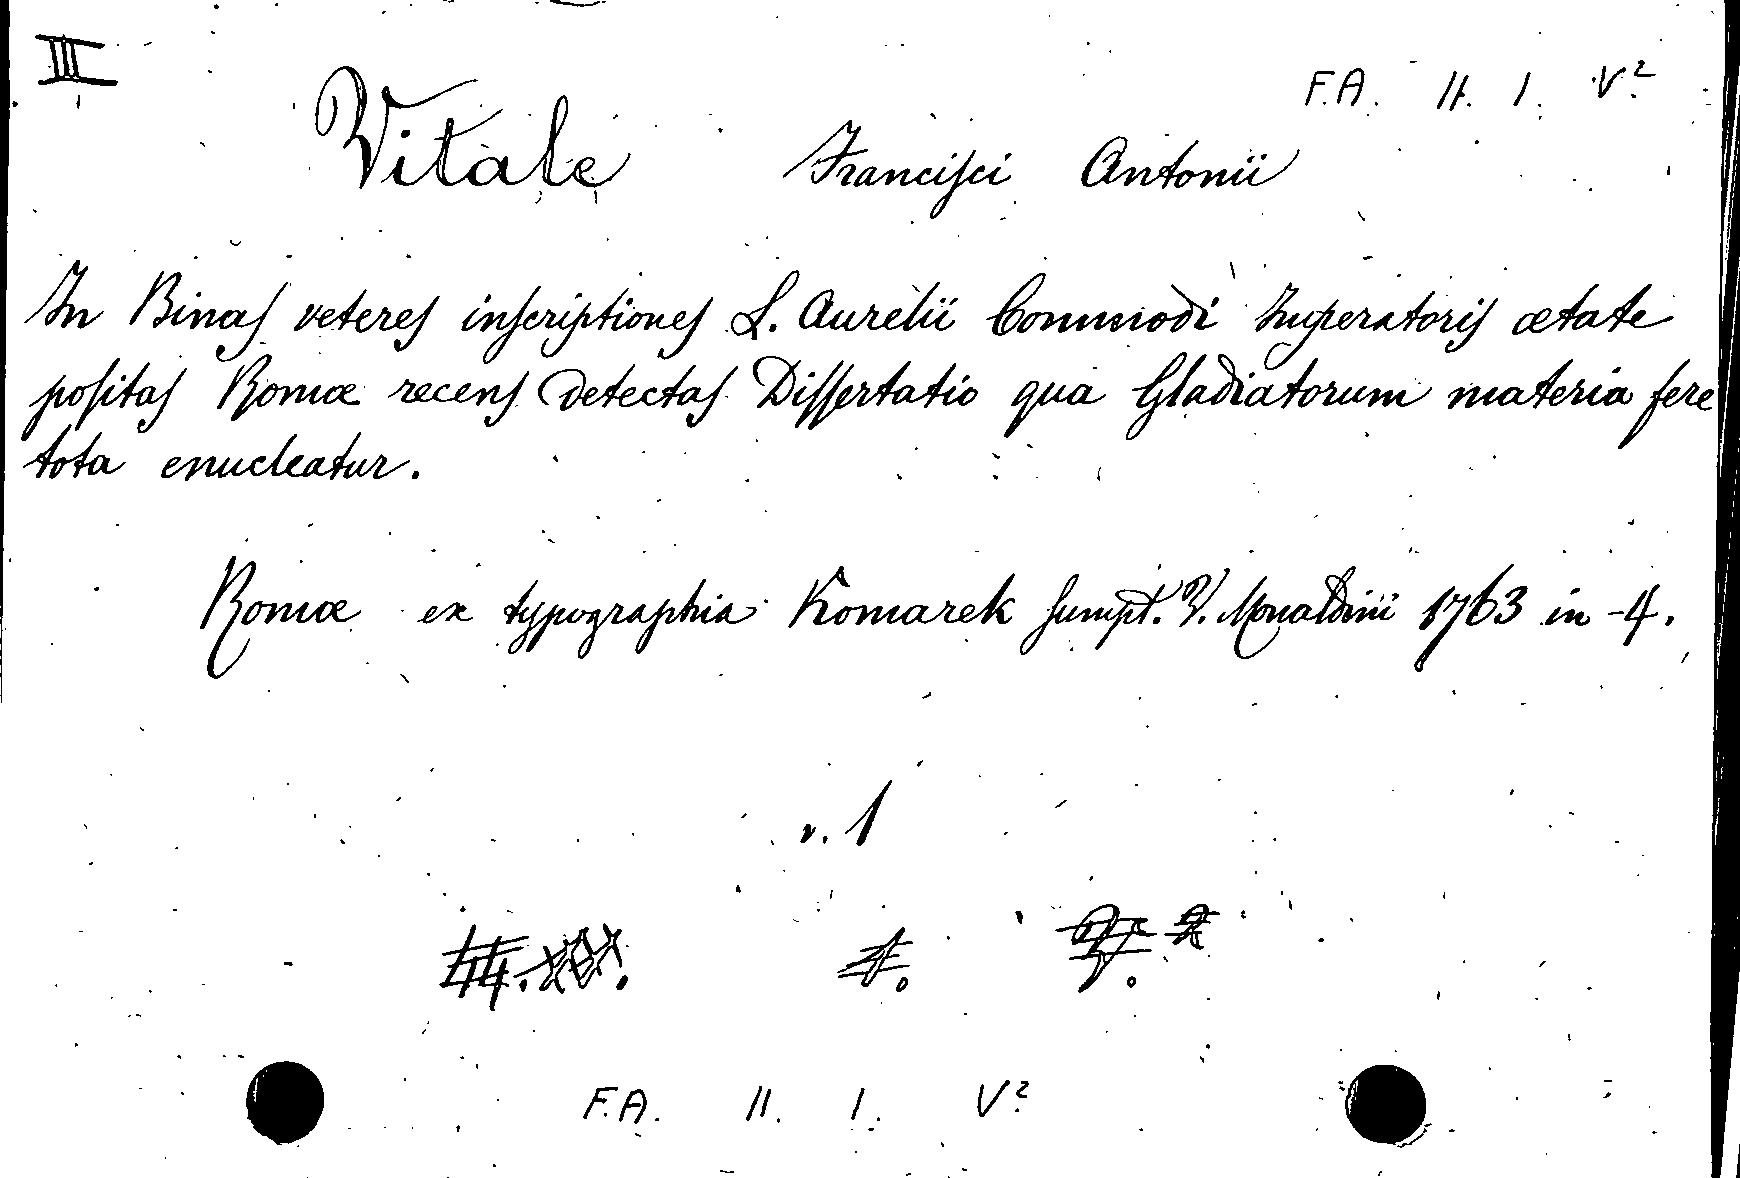 III
F.A. II. I. V²
Vitale Francisci Antonii
In Binas veteres inscriptiones L. Aurelii Commodi Imperatoris ætate
positas Romæ recens detectas Dissertatio qua Gladiatorum materia fere
tota enucleatur.
Romæ ex typographia Komarek sumpt. V. Monaldinii 1763 in-4.
v. 1
F.A. II. I. V²